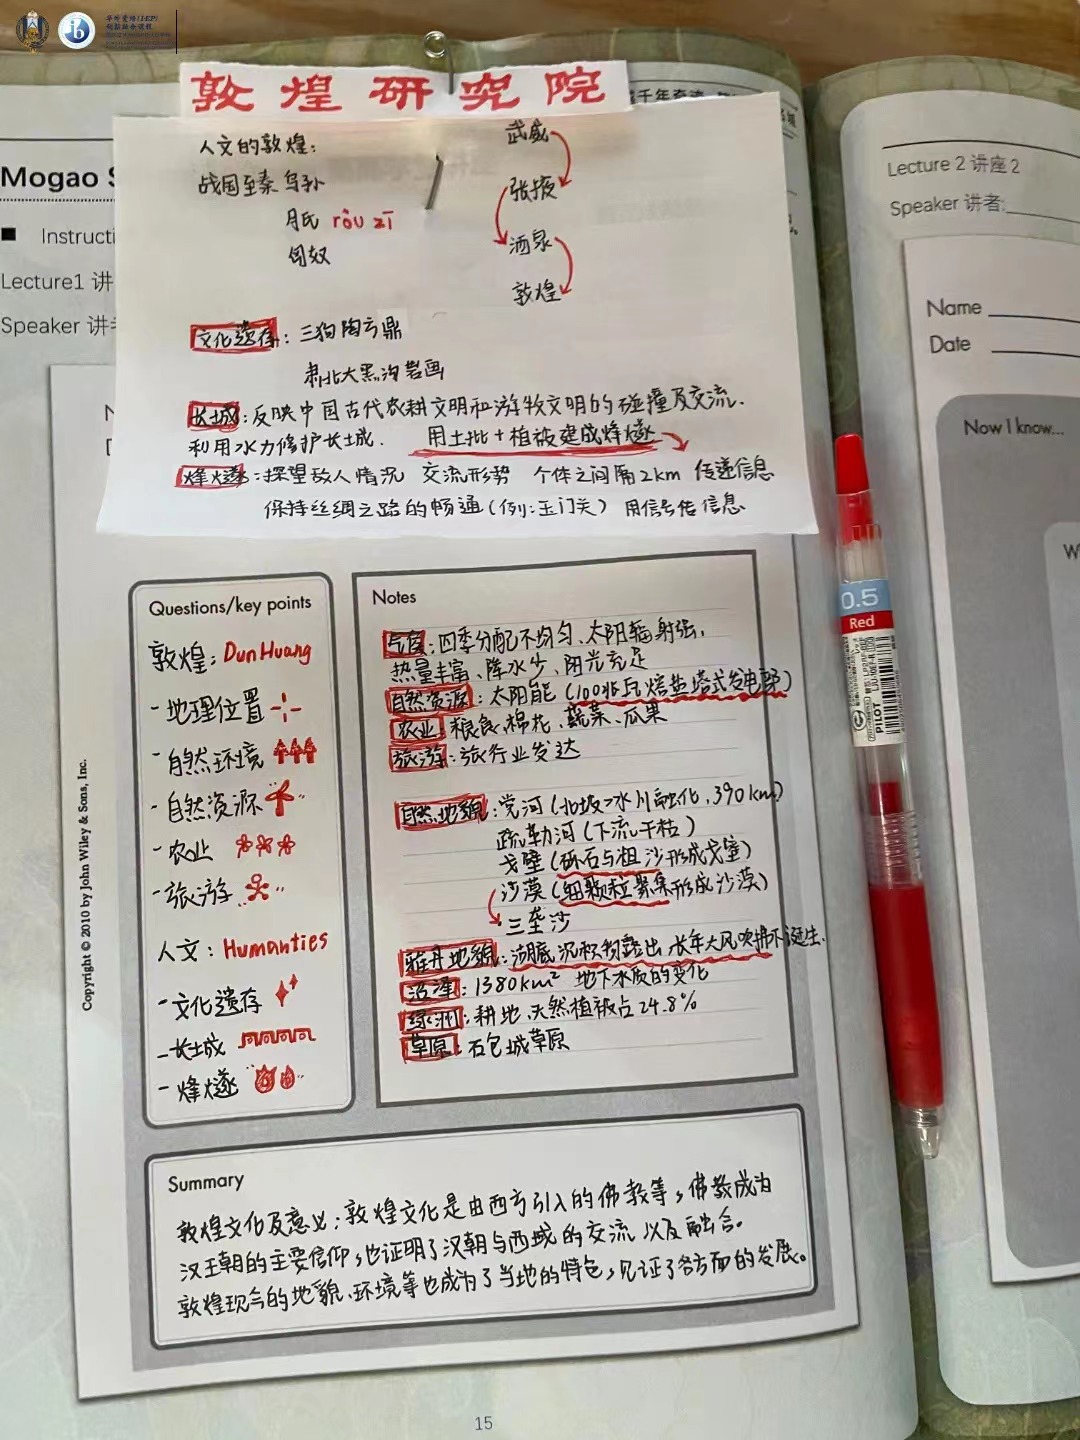 敦煌研究院
人文的敦煌:
战国至秦 乌孙
月氏 ròu zī
匈奴
武威
张掖
酒泉
敦煌
文化遗存: 三狗陶方鼎
肃北大黑沟岩画
长城: 反映中国古代农耕文明和游牧文明的碰撞及交流.
利用水力修护长城. 用土批+植被建成烽燧
烽燧: 探望敌人情况 交流形势 个体之间隔2km 传递信息
保持丝绸之路的畅通(例:玉门关) 用信号传信息
Mogao S
Instructi
Lecture1 讲
Speaker 讲
Questions/key points
敦煌: DunHuang
-地理位置
-自然环境
-自然资源
-农业
-旅游
人文: Humanties
-文化遗存
-长城
-烽燧
Notes
气候: 四季分配不均匀、太阳辐射强,
热量丰富、降水少、阳光充足
自然资源: 太阳能 (100兆瓦熔盐塔式发电站)
农业 粮食、棉花、蔬菜、瓜果
旅游: 旅行业发达
自然地貌: 党河(北坡冰川融化,390km)
疏勒河(下流干枯)
戈壁(砾石与粗沙形成戈壁)
沙漠(细颗粒聚集形成沙漠)
三垄沙
雅丹地貌: 湖底沉积物露出,长年大风吹拂下诞生.
沼泽: 1380km² 地下水质的变化
绿洲: 耕地、天然植被占24.8%
草原: 石包城草原
Summary
敦煌文化及意义: 敦煌文化是由西方引入的佛教等,佛教成为
汉王朝的主要信仰,也证明了汉朝与西域的交流以及融合。
敦煌现今的地貌、环境等也成为了当地的特色,见证了各方面的发展。
Copyright © 2010 by John Wiley & Sons, Inc.
15
0.5
Red
PILOT
Lecture 2 讲座2
Speaker 讲者:
Name
Date
Now I know...
W